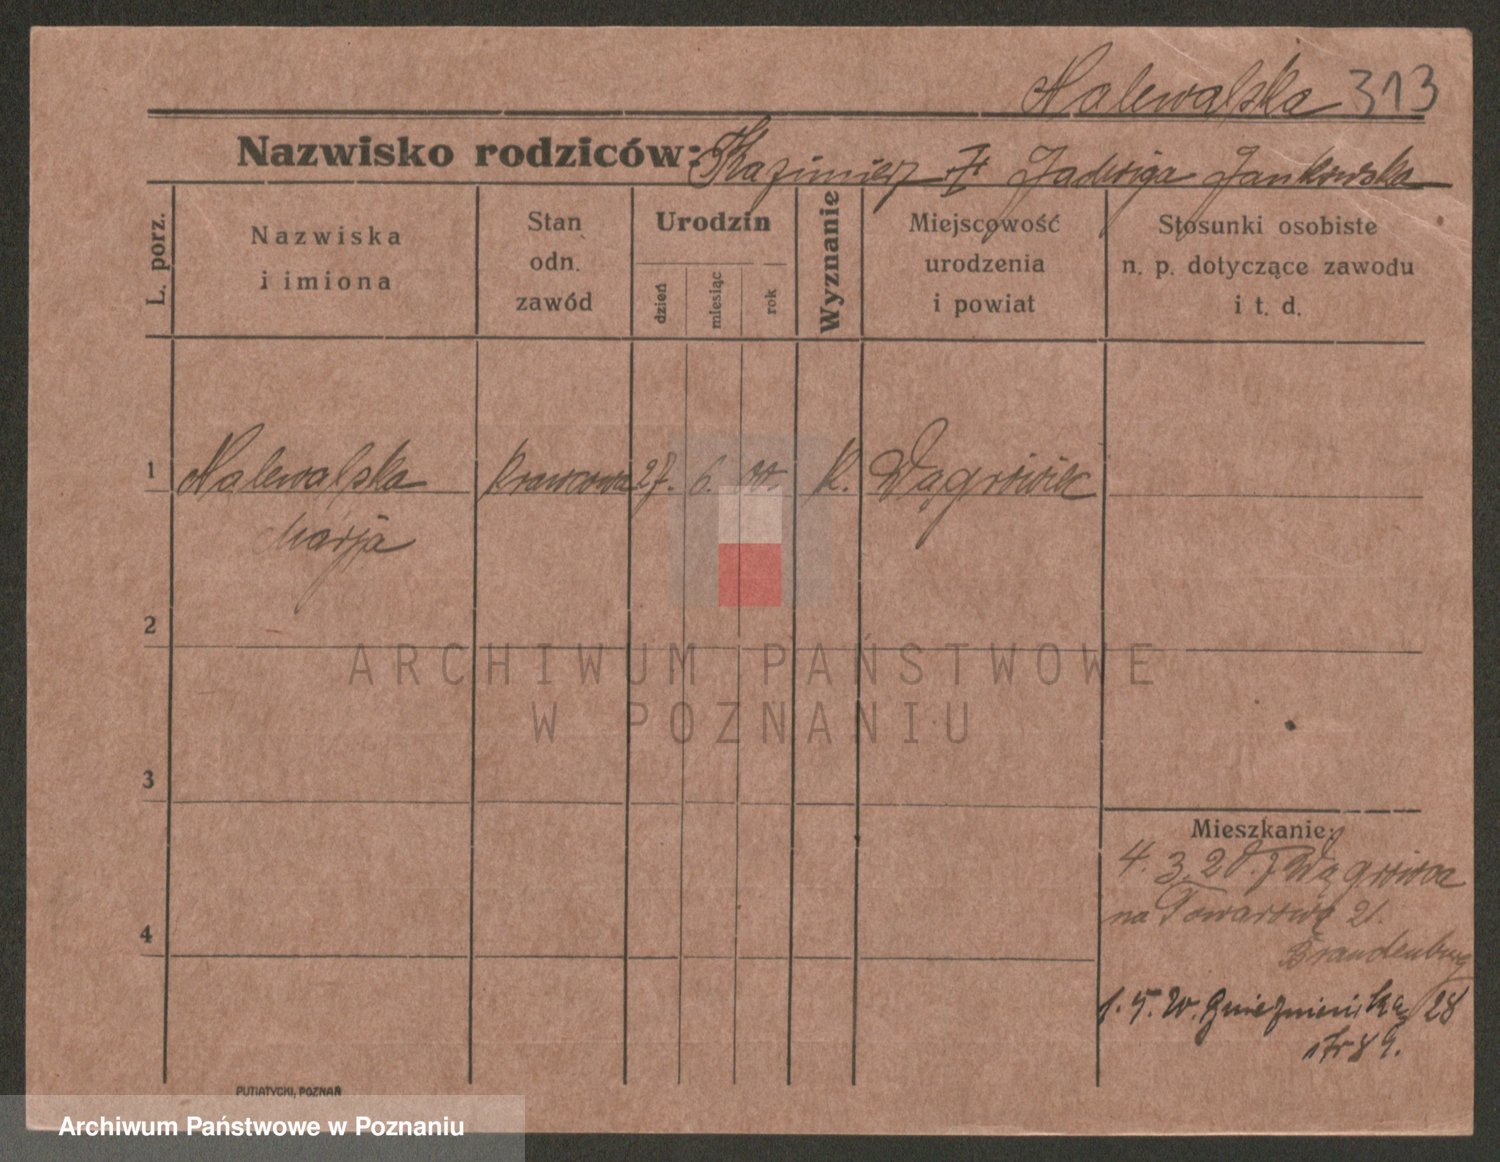 Nalewalska 313
Nazwisko rodziców: Kazimierz Jadwiga Jankowska
L. porz.
Nazwiska
i imiona
Stan
odn.
zawód
Urodzin
dzień
miesiąc
rok
Wyznanie
Miejscowość
urodzenia
i powiat
Stosunki osobiste
n. p. dotyczące zawodu
i t. d.
1 Nalewalska krawcowa 27. 6. K. Wągrówiec
Marja
2
ARCHIWUM PAŃSTWOWE
W POZNANIU
3
Mieszkanie:
4. 3. 20. z Wągrówca
na Towarową 21.
Brandenburg
4
1. 5. W. Gnieźnieńska 28
PUTIATYCKI, POZNAŃ
Archiwum Państwowe w Poznaniu